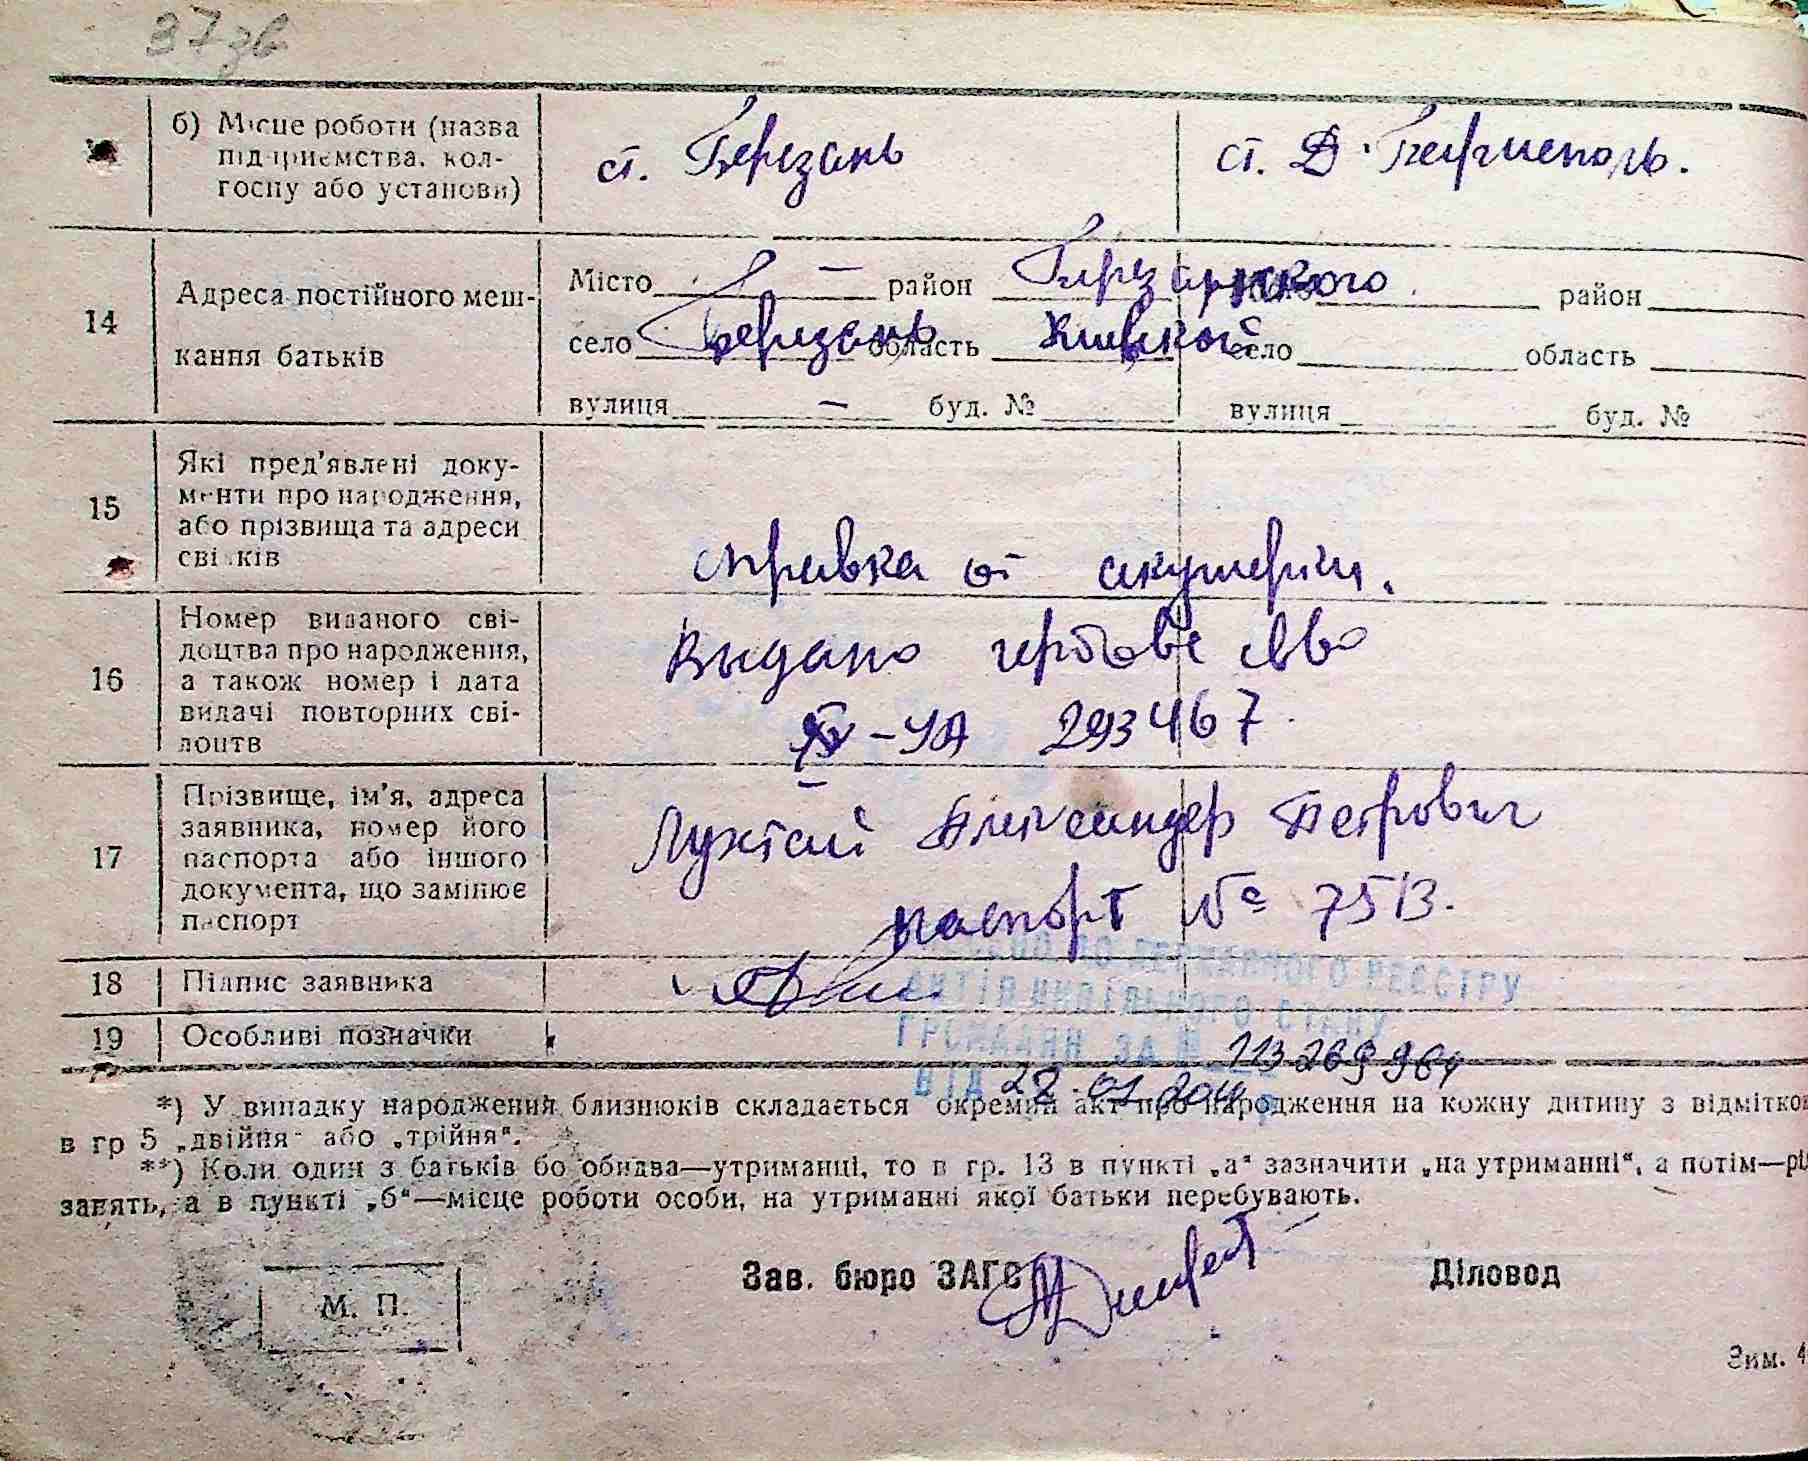 37зв
б) Місце роботи (назва
підприємства, кол-
госпу або установи)
ст. Березань
ст. Д.
14
Адреса постійного меш-
кання батьків
Місто — район Березанского район
село Березань область Киевской село область
вулиця — буд. № вулиця буд. №
15
Які пред'явлені доку-
менти про народження,
або прізвища та адреси
свідків
справка от акушерки.
16
Номер виданого сві-
доцтва про народження,
а також номер і дата
видачі повторних сві-
доцтв
Выдано гербове св-во
IV-УА 293467.
17
Прізвище, ім'я, адреса
заявника, номер його
паспорта або іншого
документа, що замінює
паспорт
Александер Петрович
паспорт № 7513.
18 Підпис заявника
ДО ДЕРЖАВНОГО РЕЄСТРУ
АКТІВ ЦИВІЛЬНОГО СТАНУ
19 Особливі позначки
ГРОМАДЯН ЗА №
ВІД
*) У випадку народження близнюків складається окремий акт про народження на кожну дитину з відміткою
в гр 5 „двійня“ або „трійня“.
**) Коли один з батьків бо обидва—утриманці, то в гр. 13 в пункті „а“ зазначити „на утриманні“, а потім—рід
занять, а в пункті „б“—місце роботи особи, на утриманні якої батьки перебувають.
М. П.
Зав. бюро ЗАГС
Діловод
Зим. 4